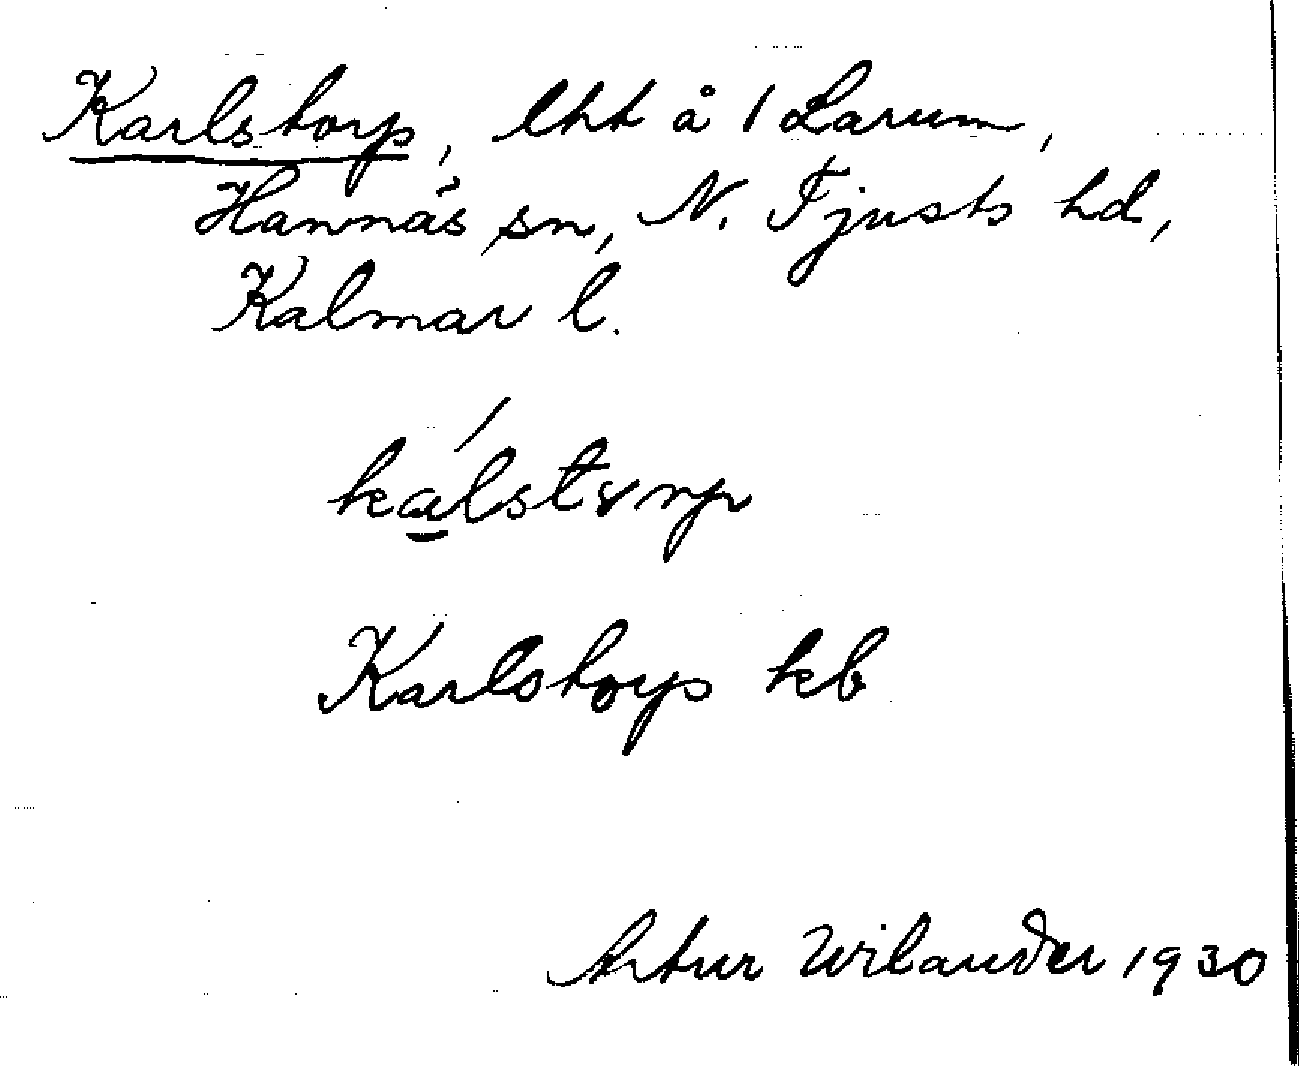 Karlstorp, lht å 1 Larum,
Hannäs sn, N. Tjusts hd,
Kalmar l.
kálstɤrp
Karlstorp kb
Artur Wilander 1930